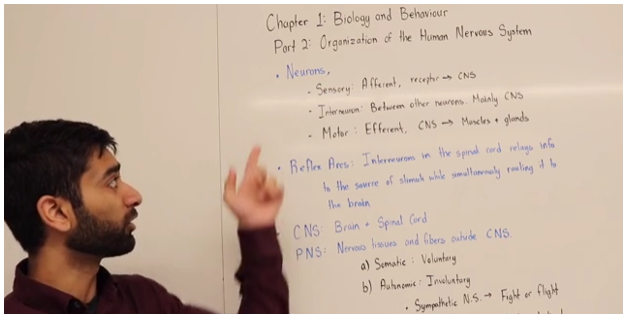 Chapter 1: Biology and Behaviour
Part 2: Organization of the Human Nervous System
• Neurons,
- Sensory: Afferent, receptor → CNS
- Interneuron: Between other neurons. Mainly CNS
- Motor: Efferent, CNS → Muscles + glands
• Reflex Arcs: Interneurons in the spinal cord relays info
to the source of stimuli while simultaneously routing it to
the brain
CNS: Brain + Spinal Cord
PNS: Nervous tissues and fibers outside CNS.
a) Somatic: Voluntary
b) Autonomic: Involuntary
• Sympathetic N.S. → Fight or flight